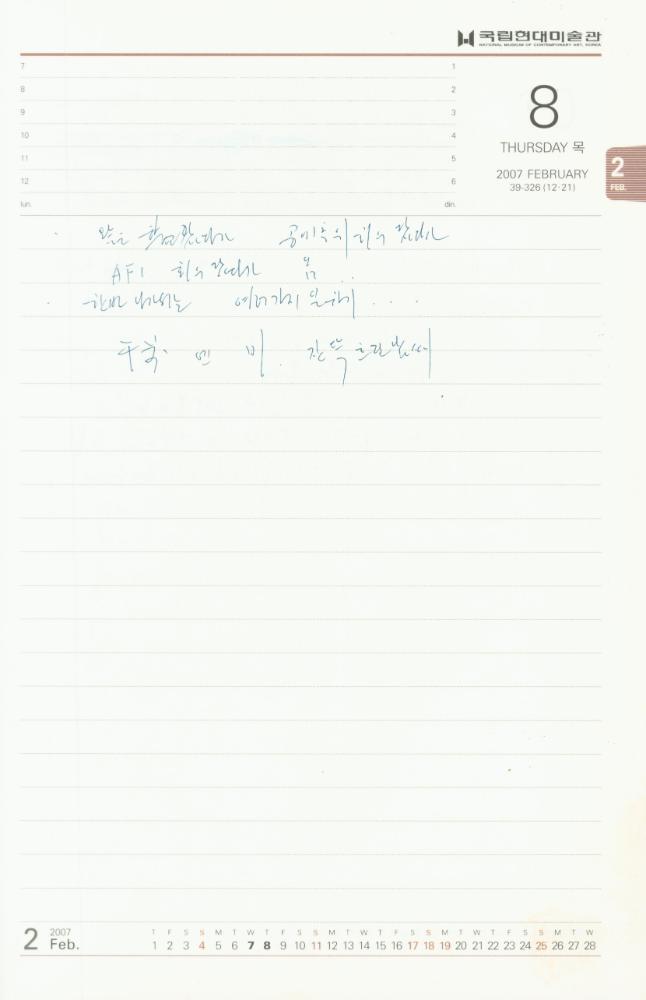 국립현대미술관
NATIONAL MUSEUM OF CONTEMPORARY ART, KOREA
7 1
8 2
9 3
10 4
11 5
12 6
lun. din.
8
THURSDAY 목
2007 FEBRUARY
39-326 (12·21)
2
FEB.
회의 갔다가
AFI 회의 갔다가 옴
여러가지 일하기 . . .
비. 잔뜩 흐린날씨
2 2007 Feb.
T F S S M T W T F S S M T W T F S S M T W T F S S M T W
1 2 3 4 5 6 7 8 9 10 11 12 13 14 15 16 17 18 19 20 21 22 23 24 25 26 27 28